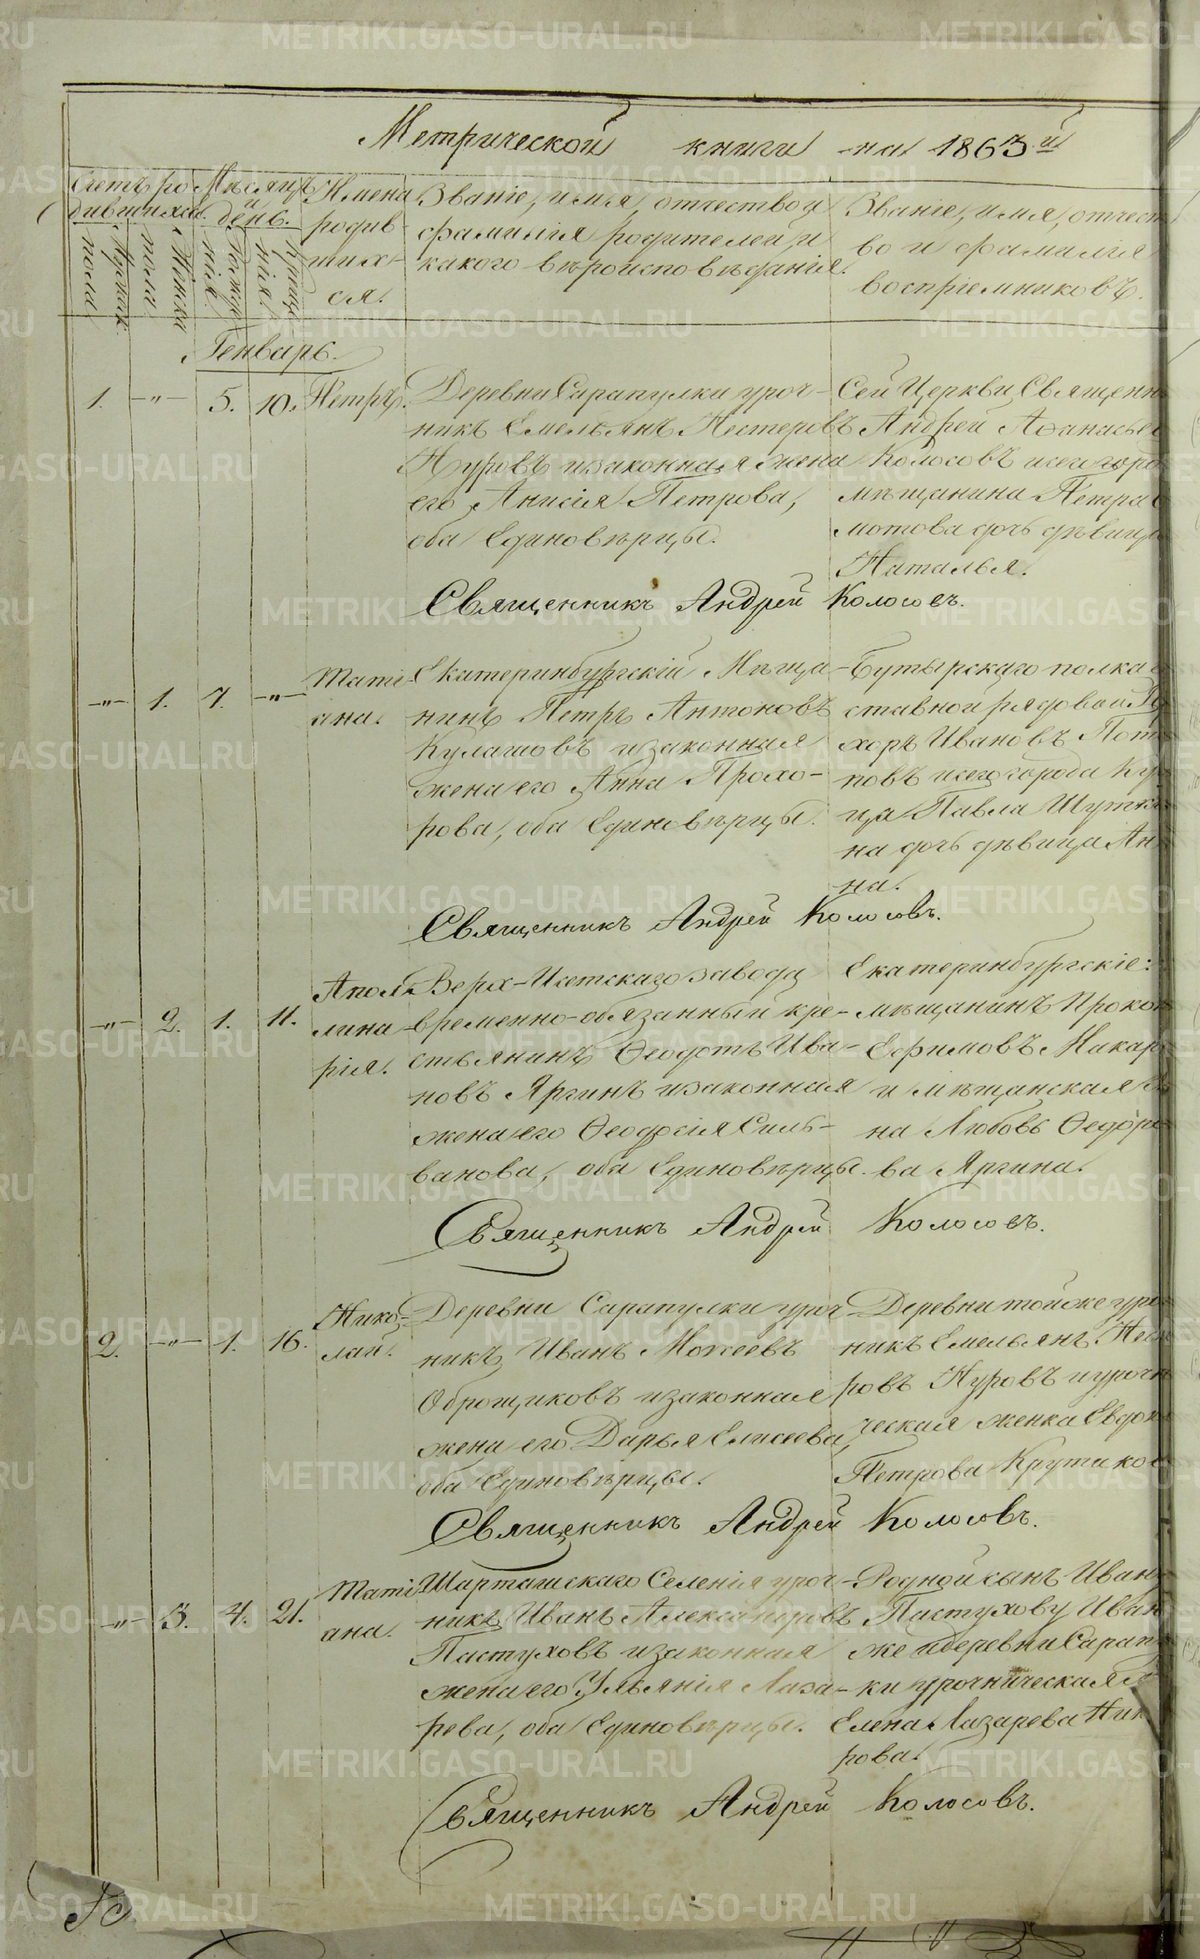 Метрической книги на 1863й
Счетъ родившихся.
Мѣсяцъ и день.
Имена родившихся.
Званіе, имя, отчество и
фамилія родителей и
какого вѣроисповѣданія.
Званіе, имя, отчест
во и фамилія
воспріемниковъ.
Мужска пола
Женска пола
Рожденія
Крещенія
Генварь.
1. -"- 5. 10. Петръ.
Деревни Сарапулки уроч-
никъ Емельянъ Нестеровъ
Нуровъ и законная жена
его Анисія Петрова,
оба Единовѣрцы.
Сей Церкви Священн
Андрей Аѳанасьев
Колосовъ и сего горо
мѣщанина Петра
мотова дочь дѣвица
Наталья.
Священникъ Андрей Колосовъ.
-"- 1. 7. -"- Тати-
ана.
Екатеринбургскій Мѣща-
нинъ Петръ Антоновъ
Кулашовъ и законная
жена его Анна Прохо-
рова, оба Единовѣрцы.
Бутырскаго полка
ставной рядовой
хоръ Ивановъ Пота
повъ и сего города Куп
ца Павла Шутки
на дочь дѣвица Ан-
на.
Священникъ Андрей Колосовъ.
-"- 2. 1. 11. Апол-
лина
рія.
Верх-Исетскаго завода
временно-обязанный кре-
стьянинъ Ѳеодотъ Ива-
новъ Яргинъ и законная
жена его Ѳеодосія Силь-
ванова, оба Единовѣрцы.
Екатеринбургскіе:
мѣщанинъ Прокоп
Ефимовъ Макар
и мѣщанская
на Любовь Ѳедоро
ва Яргина.
Священникъ Андрей Колосовъ.
2. -"- 1. 16. Нико-
лай.
Деревни Сарапулки уроч-
никъ Иванъ Мокеевъ
Оброщиковъ и законная
жена его Дарья Елисеева,
оба Единовѣрцы.
Деревни той же уроч
никъ Емельянъ Несте
ровъ Нуровъ и урочни
ческая женка Евдок
Петрова Крутиков
Священникъ Андрей Колосовъ.
-"- 3. 4. 21. Тати
ана.
Шарташскаго Селенія уроч-
никъ Иванъ Александровъ
Пастуховъ и законная
жена его Ульянія Лаза-
рева, оба Единовѣрцы.
Родной сынъ Иван
Пастухову Иван
же и деревни Сарапу
ки урочническая
Елена Лазарева Ник
рова.
Священникъ Андрей Колосовъ.
METRIKI.GASO-URAL.RU